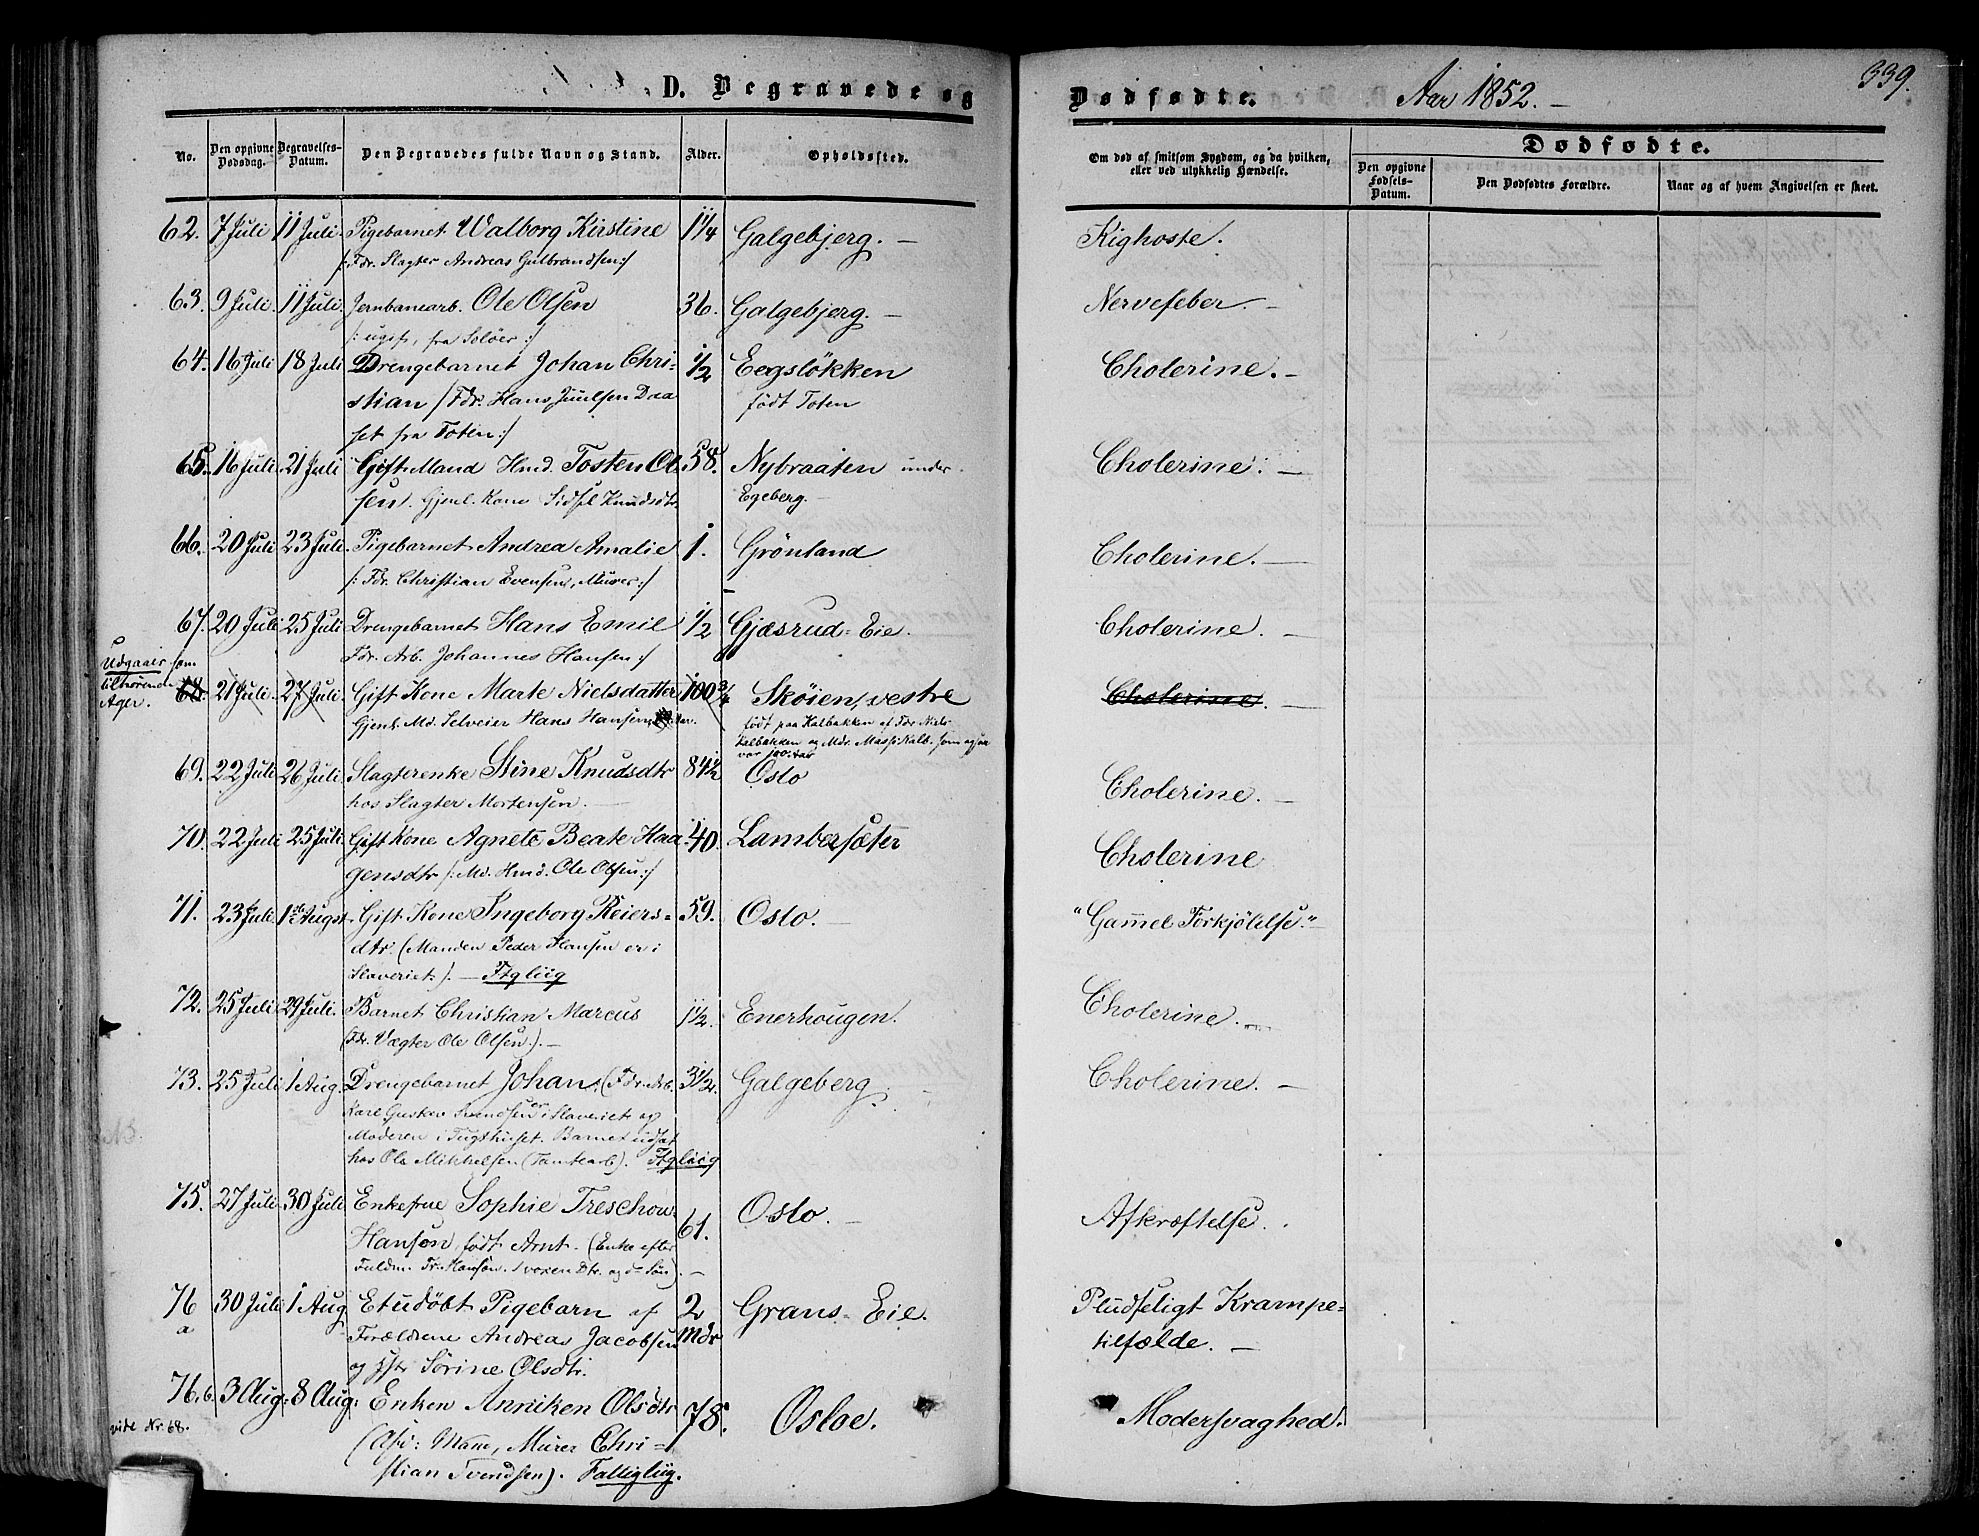 D. Begravede og
Dødfødte. Aar 1852. —
339.
No. Den opgivne Dødsdag. Begravelses-Datum. Den Begravedes fulde Navn og Stand. Alder. Opholdssted.
Om død af smitsom Sygdom, og da hvilken, eller ved ulykkelig Hændelse.
Dødfødte.
Den opgivne Fødsels-Datum. Den Dødfødtes Forældre. Naar og af hvem Angivelsen er skeet.
62. 7 Juli 11 Juli. Pigebarnet Walborg Kirstine 1 1/4 Galgebjerg. — Kighoste.
/: Fdr. Slagter Andreas Gulbrandsen :/
63. 9 Juli. 11 Juli. Jernbanearb. Ole Olsen 36. Galgebjerg. — Nervefeber. —
/: ugift, fra Soløer :/
64. 16 Juli 18 Juli Drengebarnet Johan Chri- 1/2 Eegsløkken Cholerine. —
stian /: Fdr. Hans Juulsen Daa født Toten
set fra Toten :/
65. 16 Juli. 21 Juli Gift Mand Hmd. Tosten Ol- 58. Nybraaten under Cholerine. —
sen. Gjenl. Kone Sidsel Knudsdtr. Egeberg. —
66. 20 Juli 23 Juli. Pigebarnet Andrea Amalie 1. Grønland Cholerine. —
/: Fdr. Christian Evensen, Murer :/
67. 20 Juli 25 Juli Drengebarnet Hans Emil 1/2 Gjæsrud-Eie. Cholerine. —
Fdr. Arb. Johannes Hansen :/
Udgaaer som
tilhørende
Ager.
68. 21 Juli 27 Juli. Gift Kone Marte Nielsdatter 100 3/4 Skøien, vestre Cholerine. —
Gjenl. Md. Selveier Hans Hansen født paa Kalbakken af Fdr. Niels
Kalbakken og Mdr. Massi Kalb. som ogsaa
var 100 Aar
69. 22 Juli 26 Juli. Slagterenke Stine Knudsdtr 84 1/2 Oslo Cholerine. —
hos Slagter Mortensen. —
70. 22 Juli 25 Juli. Gift Kone Agnete Beate Haa 40. Lambersæter Cholerine
gensdtr /: Md. Hmd. Ole Olsen :/
71. 23 Juli 1ste Augst. Gift Kone Ingeborg Reiers- 59. Oslo. — "Gammel Forkjølelse." —
dtr. (Manden Peder Hansen er i
Slaveriet.). — Ftglüig
72. 25 Juli 29 Juli. Barnet Christian Marcus 1 1/2. Enerhougen. Cholerine. —
(Fdr. Vægter Ole Olsen.). —
73. 25 Juli 1 Aug. Drengebarnet Johan. (Fdr. Arb. 3 1/2. Galgeberg. — Cholerine. —
Karl Gustav Svendsen er i Slaveriet og
Moderen i Tugthuset. Barnet udsat
hos Ole Mikkelsen (Tomtearb). Ftglüig
NB.
75. 27 Juli 30 Juli Enkefrue Sophie Treschow 61. Oslo. — Afkræftelse.
Hanson, født Arnt. (Enke efter
Fuldm. Fr. Hanson. 1 voxen Dtr. og do Søn). —
76 a 30 Juli 1 Aug Et udøbt Pigebarn af 2 Mdr Grans-Eie. Pludseligt Krampe-
Forældrene Andreas Jacobsen tilfælde. —
og Hstr Sørine Olsdtr.
76.b. 3 Aug: 8 Aug: Enken Anniken Olsdtr 78. Osloe. Modersvaghed.
vide Nr. 68.
(Afd: Mann, Murer Chri-
stian Svendsen). Fattiglüg.